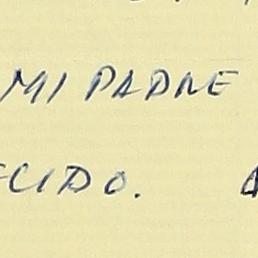 MI PADRE
ECIDO.